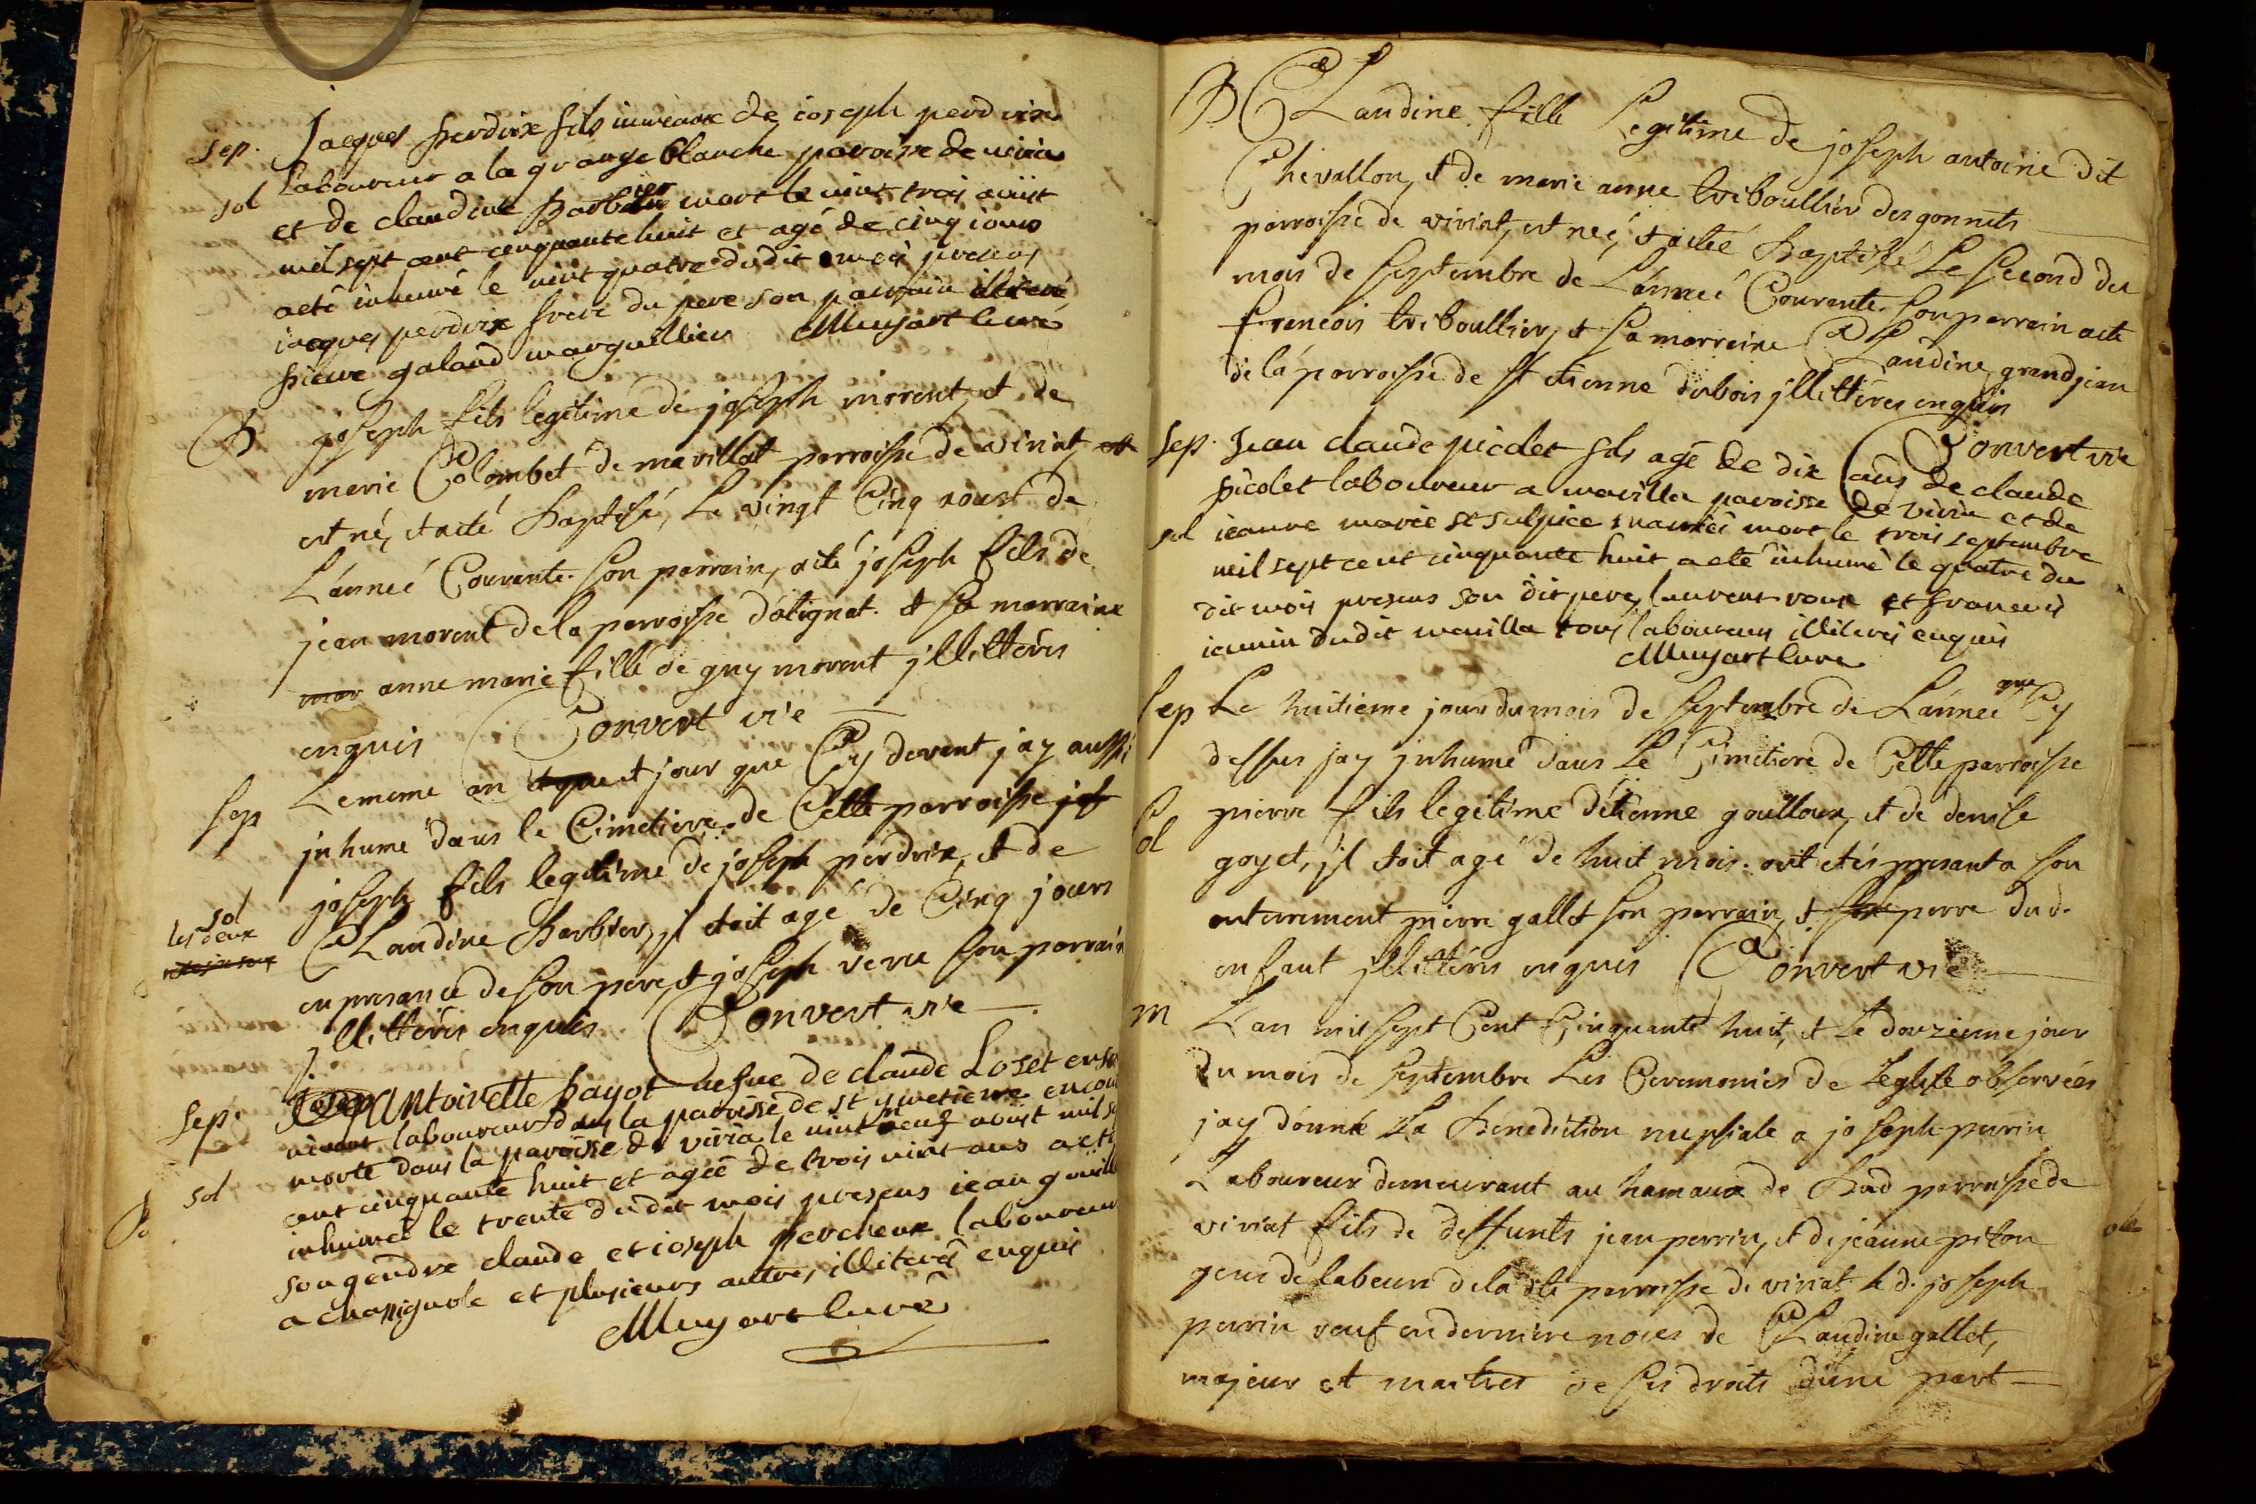 sep. Jacques perdrix fils iumeaux de ioseph perdrix
Laboureur a la grange blanche paroisse de viria
sol et de claudine barbier mort le vint trois aoust
mil sept cent cinquante huit et agé de cinq iours
a eté inhumé le vint quatre dudit mois presens
iacques perdrix frere du pere son parrain
pierre galand marguillier Muyart curé
B joseph fils legitime de joseph morent, et de
marie Colombet de marillat parroisse de viriat
est né, et a eté baptisé, Le vingt Cinq aoust de
L'année Courante. son parrain, a eté joseph fils de
jean morent de la parroisse d'atignat. et sa marraine
mar anne marie fille de guy morent jllittérés
enquis Convert vi'e
sep Le meme an et jour que Cy devent j'ay aussi
jnhumé dans le Cimetiere de Cette parroisse
joseph fils legitime de joseph perdrix, et de
sol
les deux
CLaudine barbier, jl etoit agé de Cinq jours
en presance de son pere et joseph son parrain
jllittérés enquis Convert vi'e
sep. antoinette payot vefue de claude Loset
vivant laboureur dans la paroisse de st
morte dans la paroisse de viria le vint neuf aoust mil
cent cinquante huit et ageé de trois vint ans a eté
sol inhumeé le trente dudit mois presens iean
son gendre claude et ioseph percheux laboureur
a chassignole et plusieurs autres illiterés enquis
Muyart curé
B CLaudine fille Legitime de joseph antoine dit
Chevallon, et de marie anne triboullier des gonnets
parroisse de viriat, est neé, et a eteé baptisé Le second du
mois de septembre de L'anneé Courante. son parrain a eté
francois triboullier, et sa marraine CLaudine grandjean
de la parroisse de st etienne dubois jllittérés enquis
Convert vi'e
sep. Jean claude picolet fils agé de dix ans de claude
picolet laboureur a marilla paroisse de viria et de
sol ieanne marie st sulpice mort le trois septembre
mil sept cent cinquante huit a eté inhumé le quatre du
dit mois presens son dit pere laurent roux et francois
iannin dudit marilla tous laboureurs illiterés enquis
Muyart curé
sep Le huitieme jour du mois de septembre de L'année que Cy
dessus j'ay jnhumé dans Le Cimetiere de Cette parroisse
sol pierre fils legitime d'etienne goulloux, et de denise
goyet, jl etoit agé de huit mois. ont etés presant a son
enterrement pierre gallet son parrain, et perre dud.
enfant jllittérés enquis Convert vi'e
m L'an mil sept Cent Cinquante huit, et Le douzieme jour
Du mois de septembre Les Ceremonies de Leglise observées
j'ay donné La benediction nuptiale a joseph perrin
Laboureur demeurant au hamaux de bud parroisse de
viriat fils de deffunts jean perrin, et de jeanne piton
gens de labeur de la dte parroisse de viriat. le d. joseph
perrin veuf en derniere noces de CLaudine gallet,
majeur et maitres de ses droits d'une part